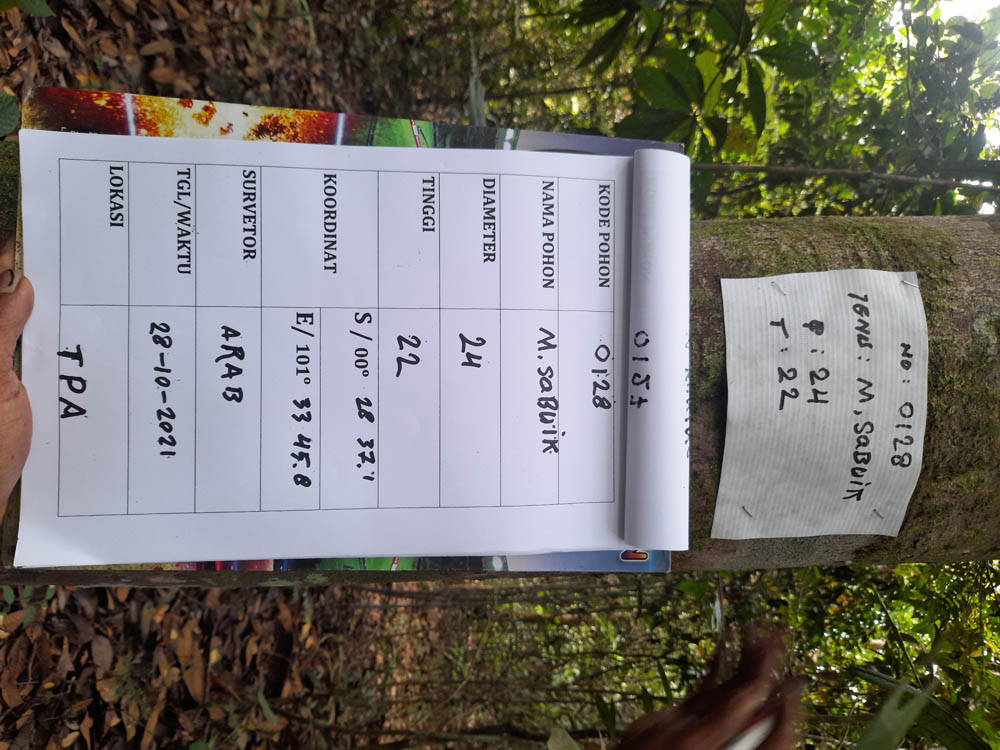 NO: 0128
JENIS: M, SABWIK
T: 22
KODE POHON 0128
NAMA POHON M. SABWIK
DIAMETER 24
TINGGI 22
KOORDINAT
S / 00° 28 37.1
E/ 101° 33 45.8
SURVETOR ARAB
TGL/WAKTU 28-10-2021
LOKASI TPA